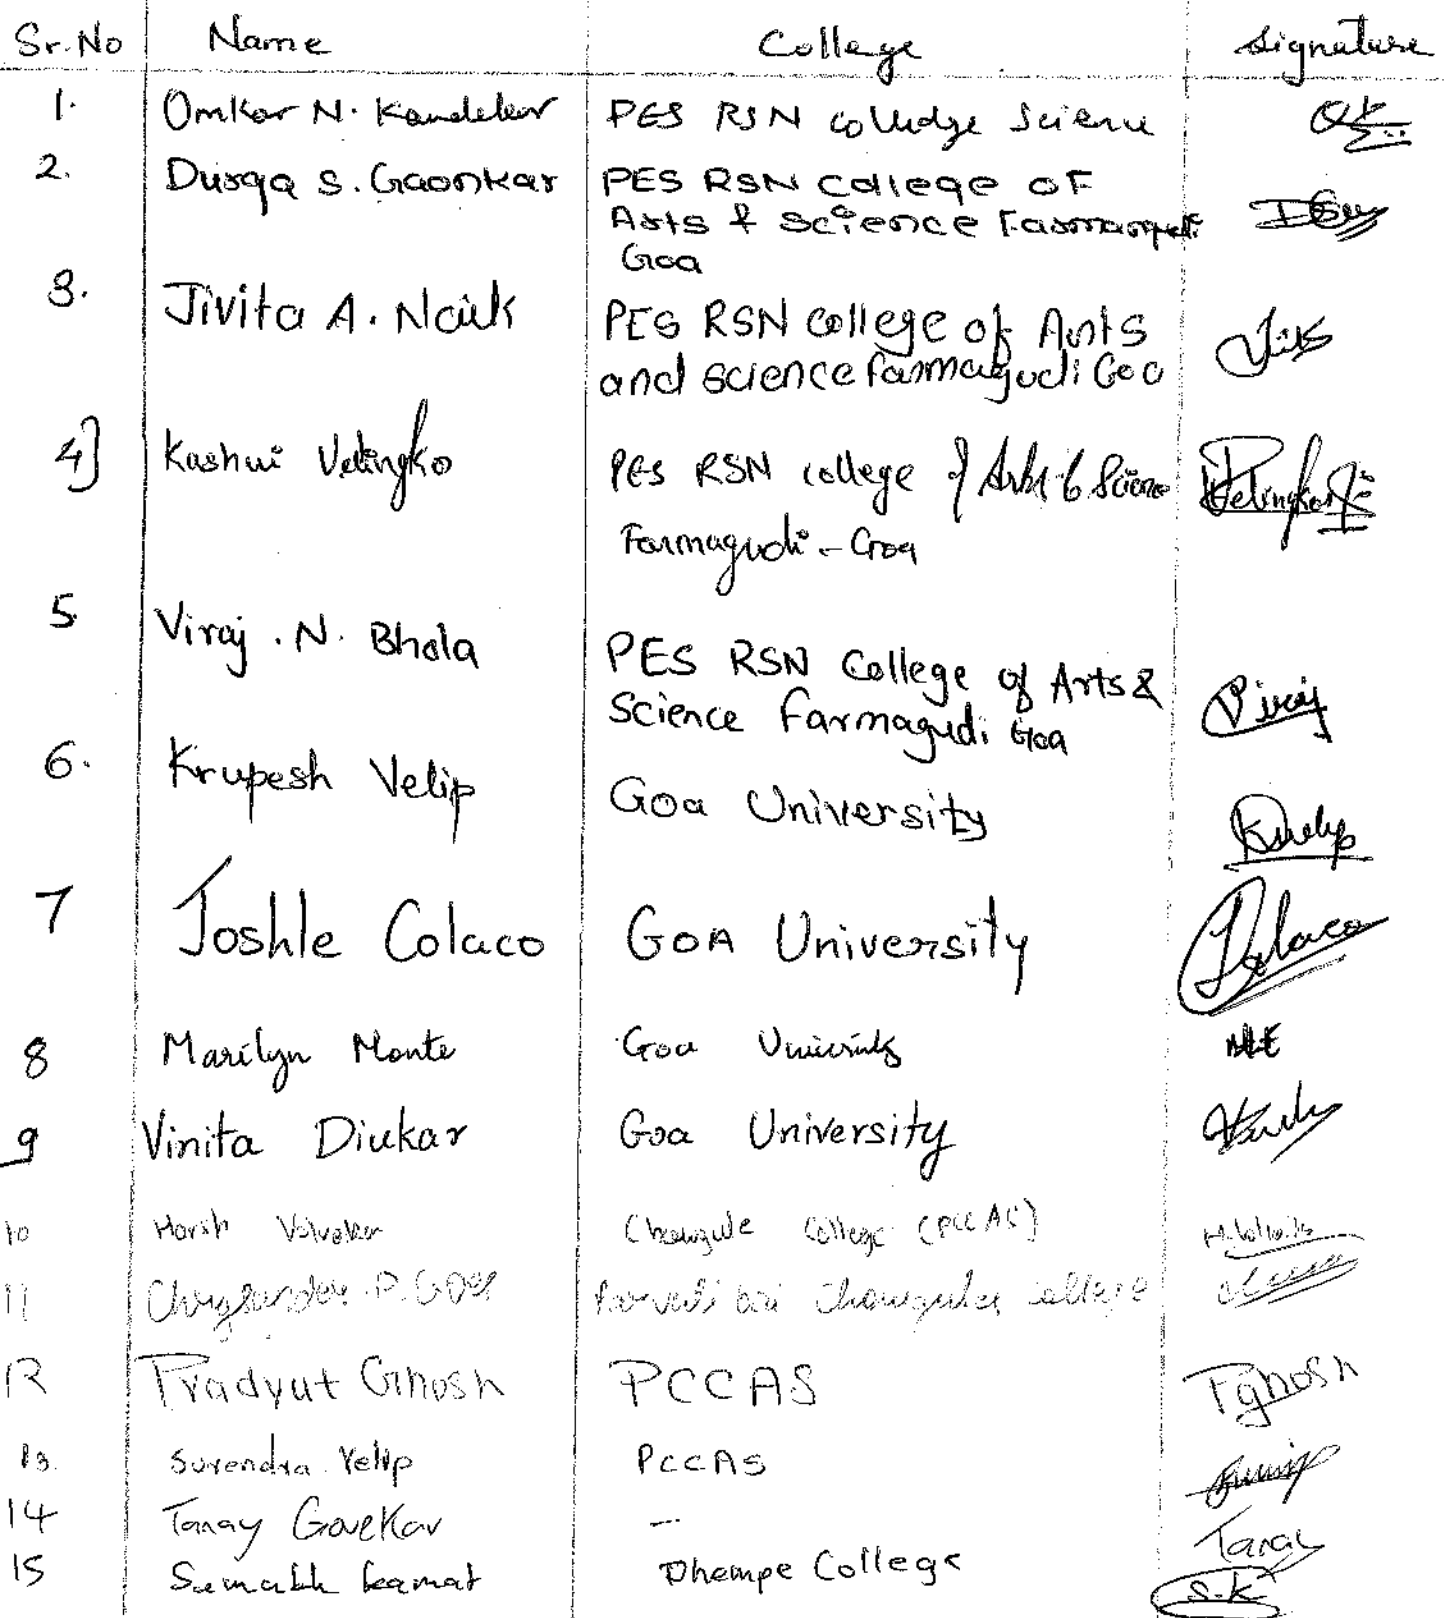 Sr.No Name College Signature
1. Omkar N. Kandekar PES RSN colledge Science
2. Durga S. Gaonkar PES RSN College OF
Arts & Science Farmagudi
Goa
3. Jivita A. Naik PES RSN college of Arts
and science farmagudi Goa
4] Kashvi Velingko PES RSN college of Arts & Science Velingkar
Farmagudi - Goa
5. Viraj . N. Bhola PES RSN College of Arts &
Science Farmagudi Goa Viraj
6. Krupesh Velip Goa University
7 Joshle Colaco GOA University Colaco
8 Marilyn Monte Goa University
9 Vinita Diukar Goa University
10 Harsh Volvoikar Chowgule College (PCCAS)
11 P. Parvati bai Chowgule college
12 Pradyut Ghosh PCCAS Pghosh
13. Surendra Velip PCCAS
14 Tanay Govekar --- Tanay
15 Kamat Dhempe College S.K